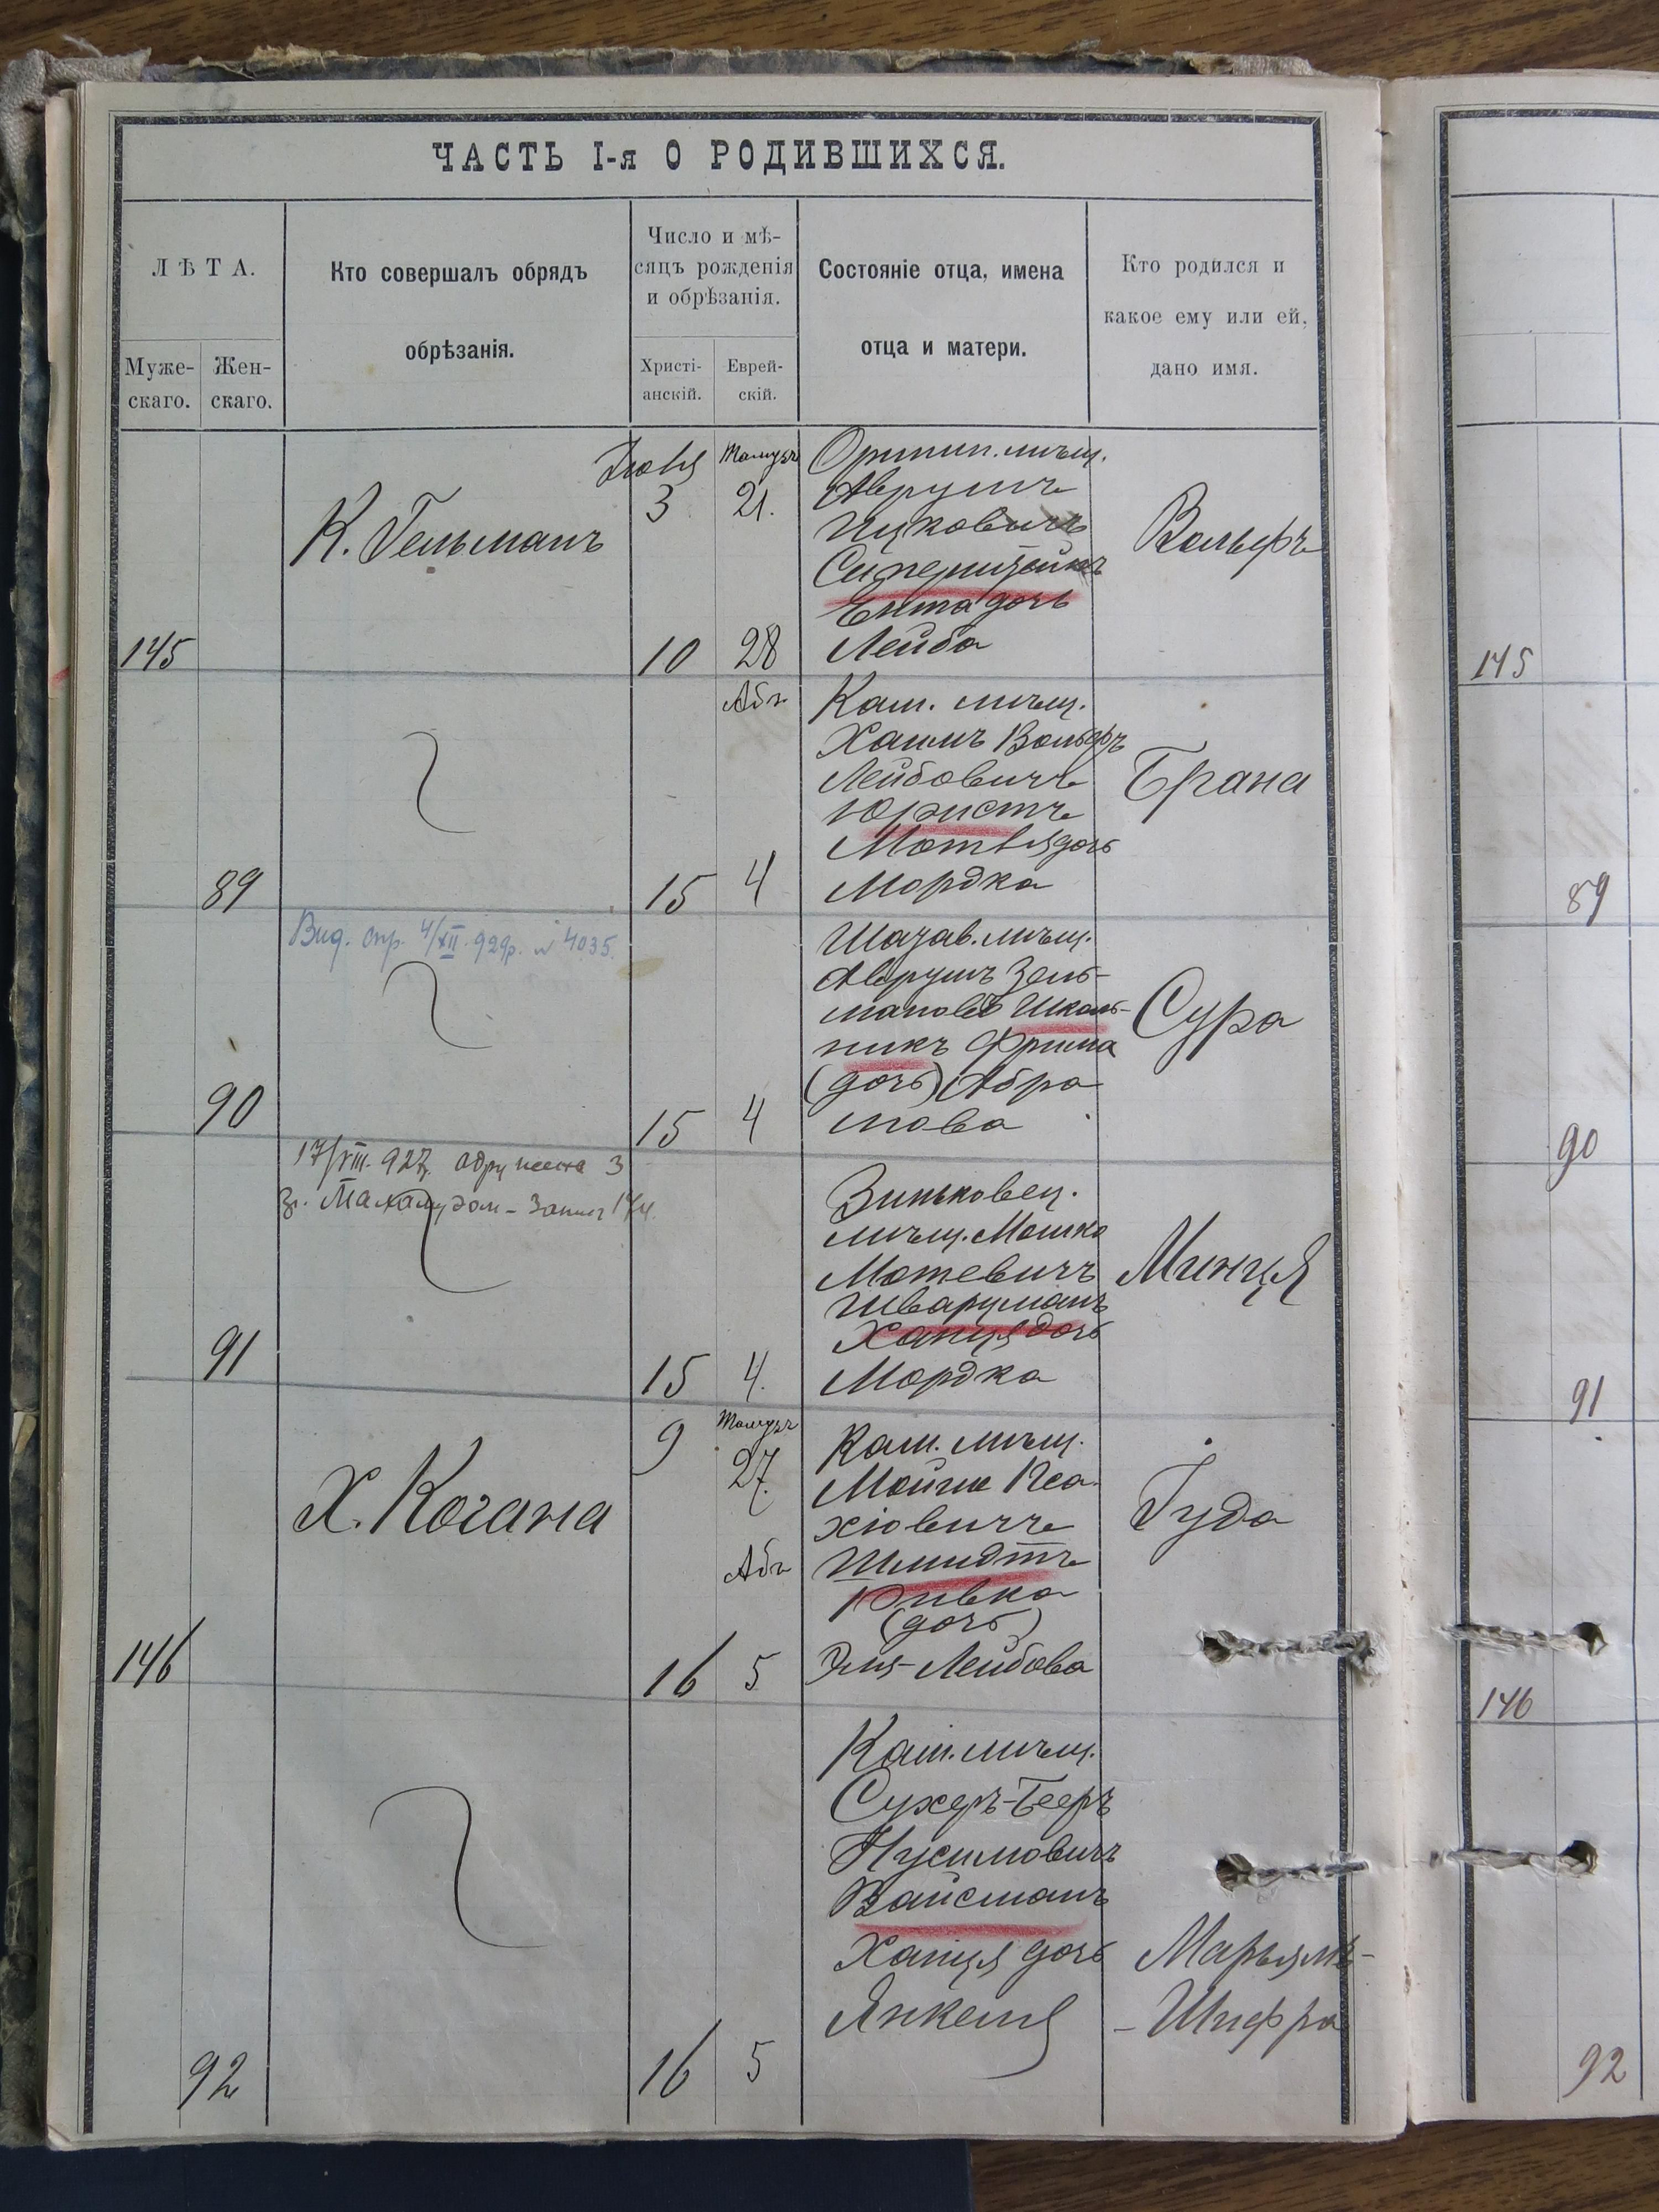 ЧАСТЬ I-я О РОДИВШИХСЯ.
ЛѢТА.
Муже-
скаго.
Жен-
скаго.
Кто совершалъ обрядъ
обрѣзанія.
Число и мѣ-
сяцъ рожденія
и обрѣзанія.
Христі-
анскій.
Еврей-
скій.
Состояніе отца, имена
отца и матери.
Кто родился и
какое ему или ей,
дано имя.
145
К. Гельманъ
Іюля
3
10
Тамузъ
21.
28
мѣщ.
Аврумъ
Ицковичъ
Ента дочь
Лейба
Вольфъ
89
15
Абъ
4
Кам. мѣщ.
Хаимъ Вольфъ
Лейбовичъ
Юристъ
Мотля дочь
Мордка
Брана
Вид. спр. 4/XII 929р. № 4035.
90
15
4
мѣщ.
Аврумъ Зель-
мановъ Школь-
никъ Фрима
(дочь) Абра
мова
Сура
17/VIII. 927
91
15
4.
Зиньковец.
мѣщ. Мошко
Мотевичъ
Шварцманъ
Ханця дочь
Мордка
Минця
146
Х. Когана
9
16
Тамузъ
27.
Абъ
5
Кам. мѣщ.
Мойше Пса-
хіовичъ
Шмидтъ
Ривка
(дочь)
Эля-Лейбова
Іуда
92
16
5
Кам. мѣщ.
Сухеръ-Бееръ
Нусимовичъ
Вайсманъ
Ханця дочь
Янкеля
Марьямъ-
-Шифра
145
89
90
91
146
92